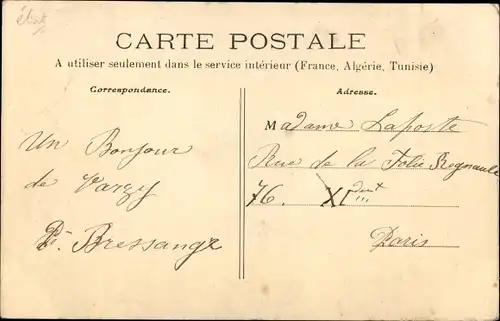 CARTE POSTALE
A utiliser seulement dans le service intérieur (France, Algérie, Tunisie)
Correspondance.
Adresse.
Un Bonjour
de Varzy
Madame Laposte
Rue de la Folie Regnault
76. XI
Paris